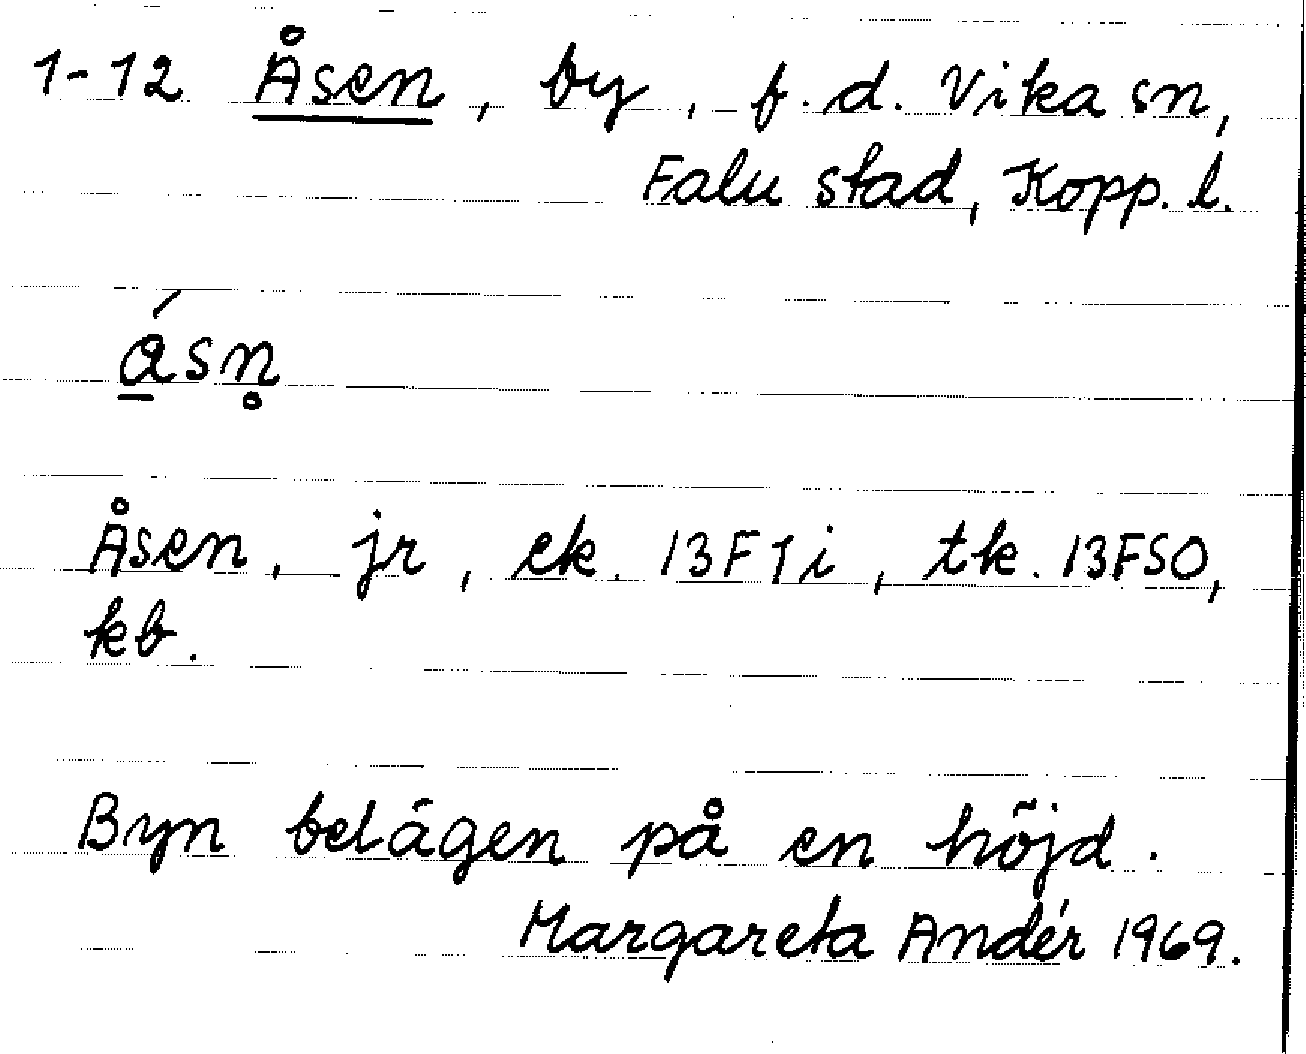 1-12 Åsen, by, f.d. Vika sn,
Falu stad, Kopp. l.
ásn̥
Åsen, jr, ek. 13F1i, tk. 13FSO,
kb.
Byn belägen på en höjd.
Margareta Andér 1969.